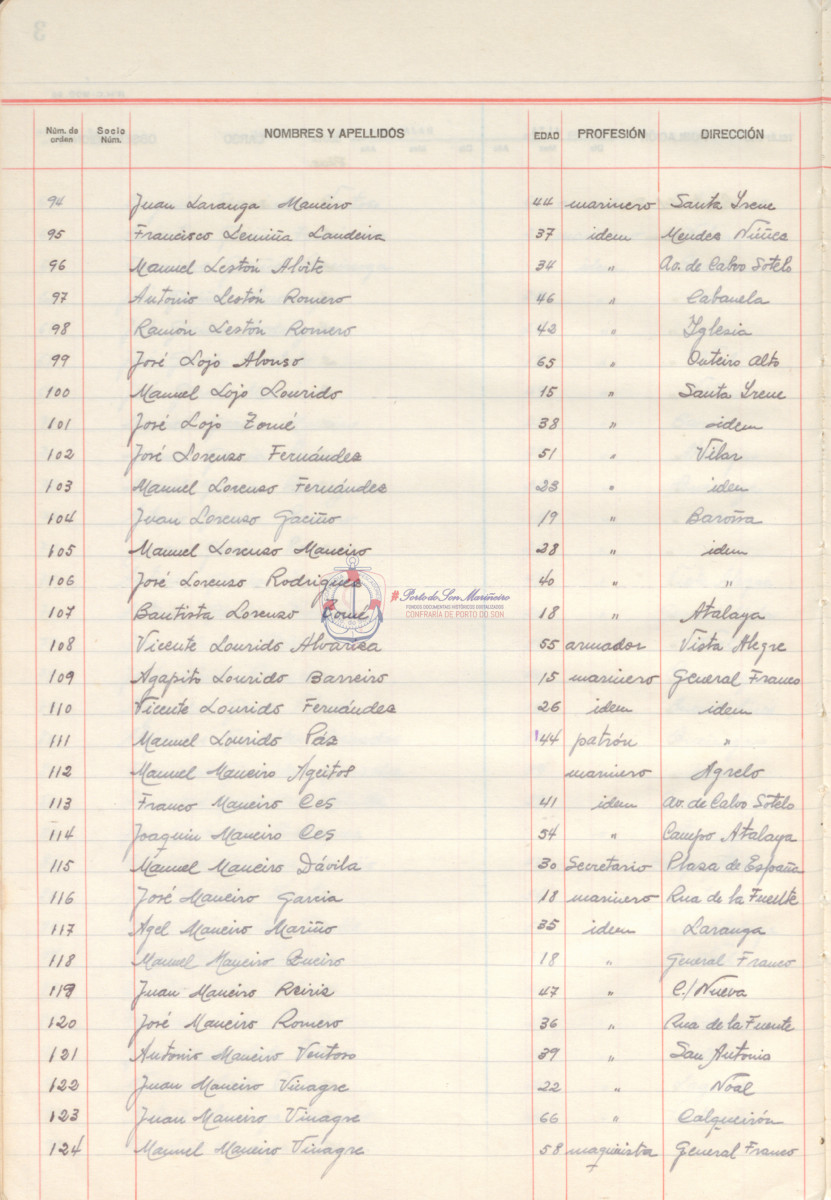 Núm. de orden Socio Núm. NOMBRES Y APELLIDOS EDAD PROFESIÓN DIRECCIÓN
94 Juan Laranga Maneiro 44 marinero Santa Yrene
95 Francisco Lemiña Landeira 37 idem Mendez Núñez
96 Manuel Lestón Alvite 34 " Av. de Calvo Sotelo
97 Antonio Lestón Romero 46 " Cabanela
98 Ramón Lestón Romero 42 " Yglesia
99 José Lojo Alonso 65 " Outeiro alto
100 Manuel Lojo Lourido 15 " Santa Yrene
101 José Lojo Tomé 38 " idem
102 José Lorenzo Fernández 51 " Vilar
103 Manuel Lorenzo Fernández 23 " idem
104 Juan Lorenzo Gaciño 19 " Baroña
105 Manuel Lorenzo Maneiro 28 " idem
106 José Lorenzo Rodriguez 40 " "
# Porto do Son Mariñeiro
FONDOS DOCUMENTAIS HISTÓRICOS DIXITALIZADOS
CONFRARÍA DE PORTO DO SON
107 Bautista Lorenzo Tomé 18 " Atalaya
108 Vicente Lourido Alvarez 55 armador Vista Alegre
109 Agapito Lourido Barreiro 15 marinero General Franco
110 Vicente Lourido Fernández 26 idem idem
111 Manuel Lourido Páz 44 patrón "
112 Manuel Maneiro Ageitos marinero Agrelo
113 Franco Maneiro Ces 41 idem Av. de Calvo Sotelo
114 Joaquin Maneiro Ces 54 " Campo Atalaya
115 Manuel Maneiro Dávila 30 Secretario Plaza de España
116 José Maneiro Garcia 18 marinero Rua de la Fuente
117 Agel Maneiro Mariño 35 idem Laranga
118 Manuel Maneiro 18 " General Franco
119 Juan Maneiro Reiriz 47 " C./ Nueva
120 José Maneiro Romero 36 " Rua de la Fuente
121 Antonio Maneiro Ventoso 39 " San Antonio
122 Juan Maneiro Vinagre 22 " Noal
123 Juan Maneiro Vinagre 66 " Calqueirón
124 Manuel Maneiro Vinagre 58 maquinista General Franco